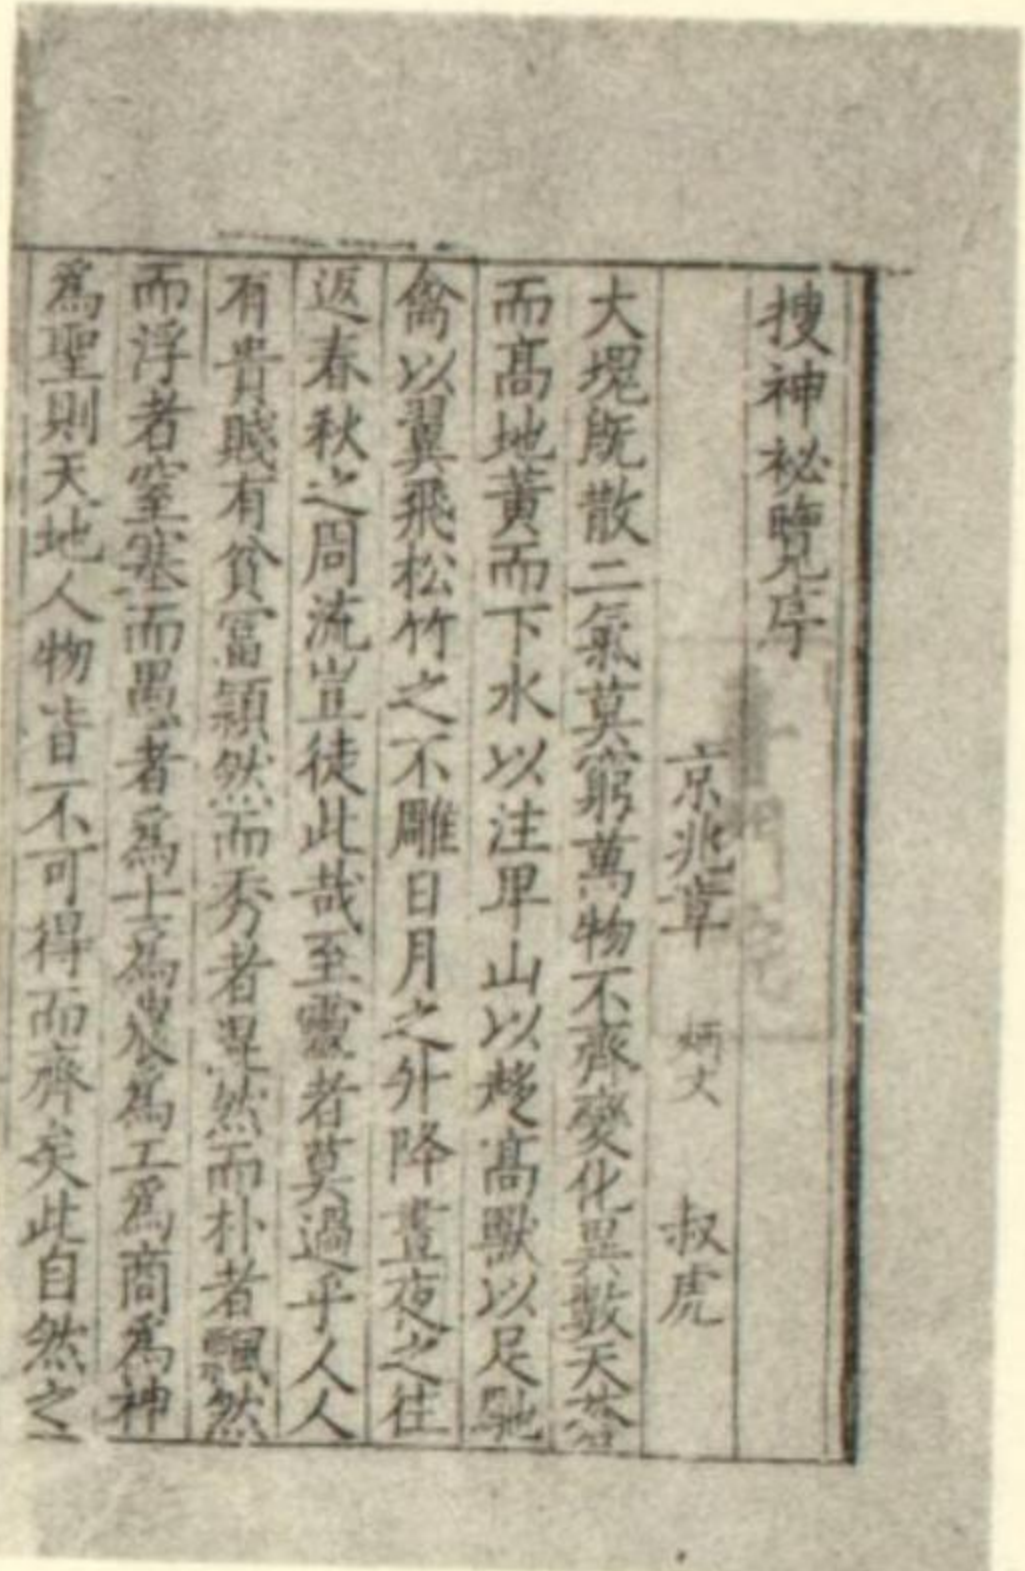 搜神祕覽序
京兆章 炳文 叔虎
大塊旣散二氣莫窮萬物不齊變化異數天蒼
而髙地黃而下水以注卑山以趍髙獸以足馳
禽以翼飛松竹之不雕日月之升降晝夜之往
返春秋之周流豈徒此哉至靈者莫過乎人人
有貴賤有貧富頴然而秀者畢然而朴者飄然
而浮者窒塞而愚者爲士爲農爲工爲商爲神
爲聖則天地人物皆不可得而齊矣此自然之